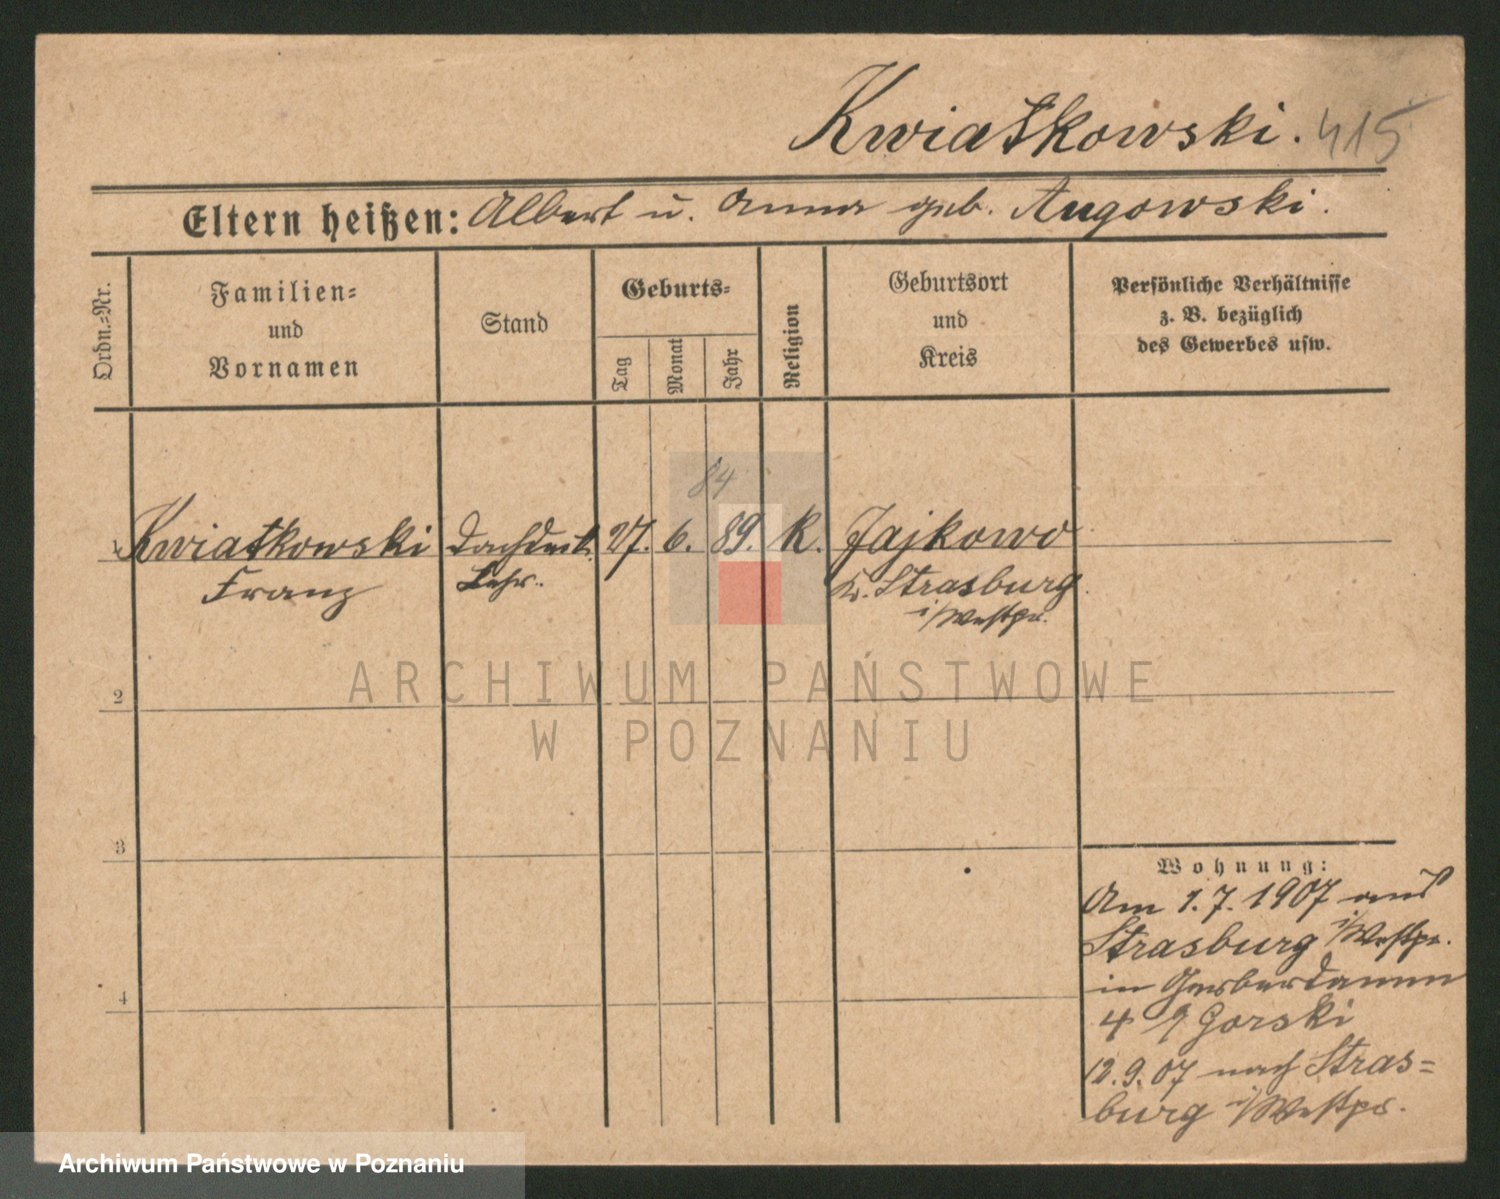 Kwiatkowski. 415
Eltern heißen: Albert u. Anna geb. Augowski.
Ordn.-Nr.
Familien-
und
Vornamen
Stand
Geburts-
Tag
Monat
Jahr
Religion
Geburtsort
und
Kreis
Persönliche Verhältnisse
z. B. bezüglich
des Gewerbes usw.
84
1 Kwiatkowski Dachdeck. 27. 6. 89. K. Jajkowo
Franz Lehr. Kr. Strasburg
i/Westpr.
2
3
4
Wohnung:
Am 1.7.1907 aus
Strasburg i/Westpr.
in Gerberdamm
4 Gorski
12.9.07 nach Stras=
burg i/Westpr.
ARCHIWUM PAŃSTWOWE
W POZNANIU
Archiwum Państwowe w Poznaniu